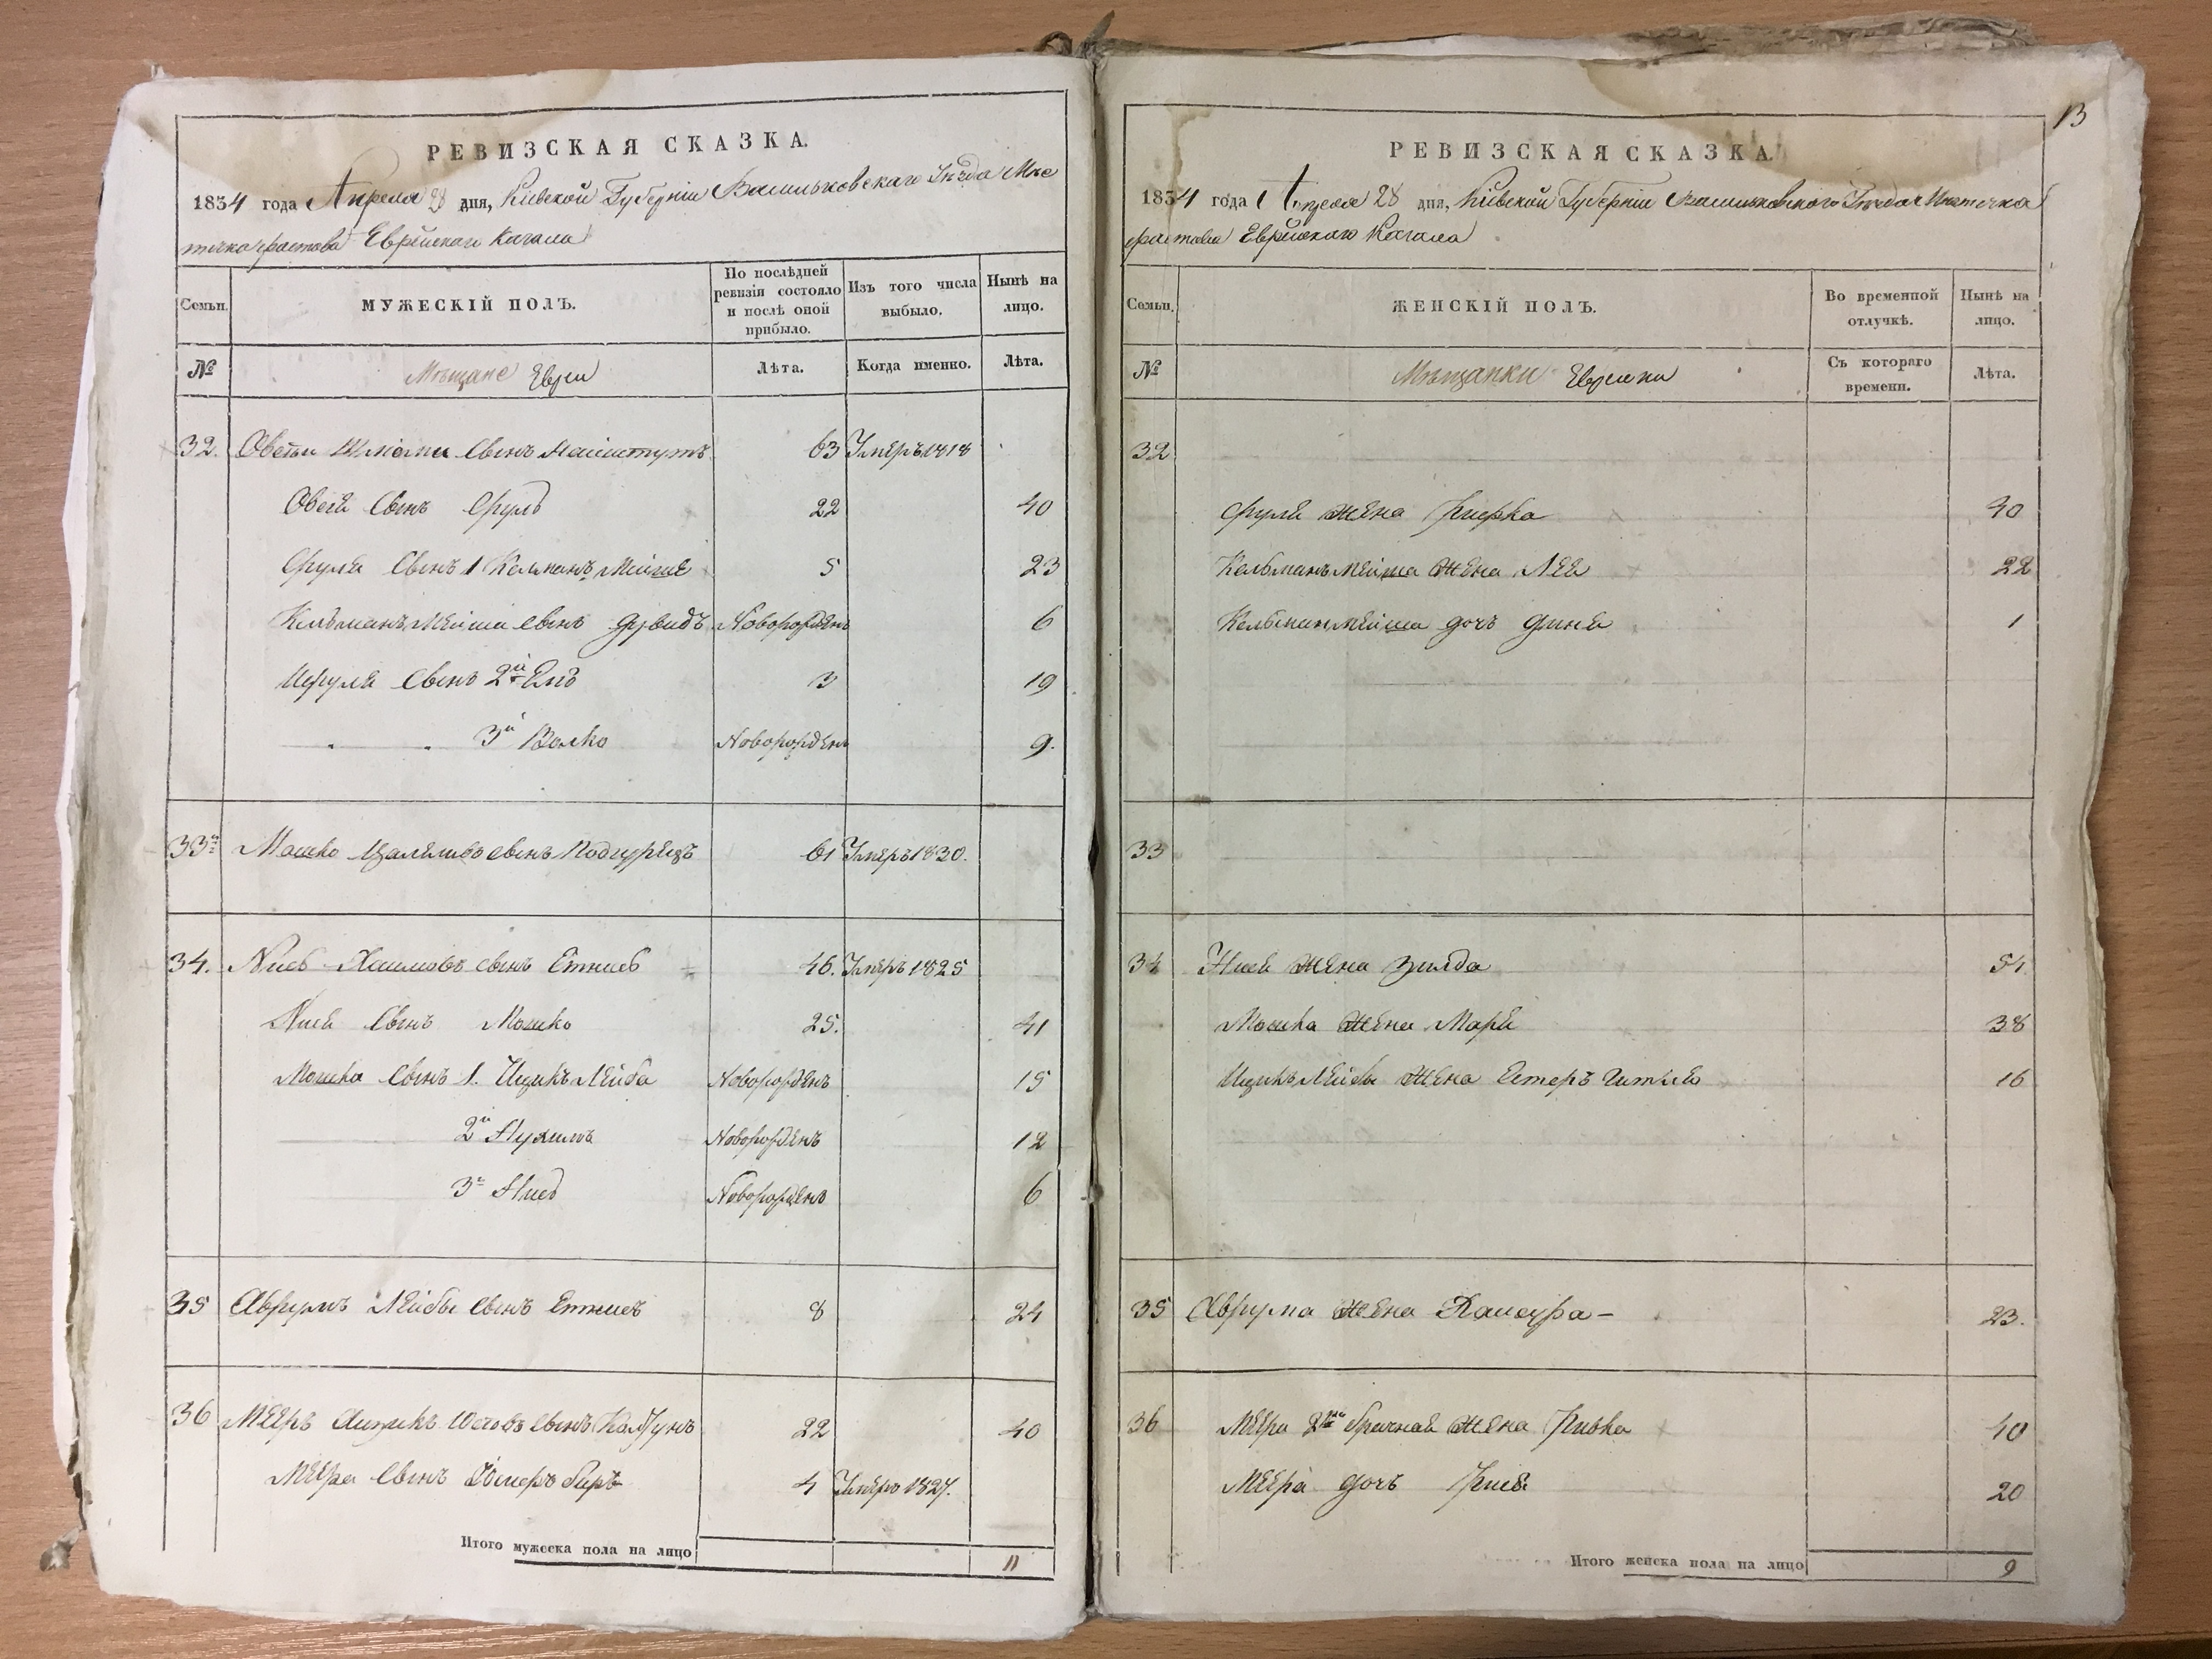 РЕВИЗСКАЯ СКАЗКА.
1834 года Апреля 28 дня, Кіевской Губерніи Васильковскаго Уѣзда Мѣс
течка Фастова Еврейскаго Кагала
Семьи.
МУЖЕСКІЙ ПОЛЪ.
По послѣдней ревизіи состояло и послѣ оной прибыло.
Изъ того числа выбыло.
Нынѣ на лицо.
№
Мѣщане Евреи
Лѣта.
Когда именно.
Лѣта.
32. Сынъ 63 Умеръ 1818
Сынъ Сруль 22 40
Сруля Сынъ 1 Калманъ Мейше 5 23
Кальманъ Мейша Сынъ Дувидъ Новорожденъ 6
Исруля Сынъ 2й 3 19
3й Волко Новорожденъ 9.
33й Мошко сынъ Подгурецъ 61 Умеръ 1830.
34. Хаимовъ сынъ 46. Умеръ 1825
Сынъ Мошко 25. 41
Мошка Сынъ 1. Ицикъ Лейба Новорожденъ 15
2й Нухимъ Новорожденъ 12
3й Новорожденъ 6
35 Аврумъ Лейбы Сынъ 8 24
36 Мееръ Сынъ Колтунъ 22 40
Меера Сынъ 4 Умеръ 1827.
Итого мужеска пола на лицо 11
13
РЕВИЗСКАЯ СКАЗКА.
1834 года Апреля 28 дня, Кіевской Губерніи Васильковскаго Уѣзда Мѣстечка
Фастова Еврейскаго Кагала
Семьи.
ЖЕНСКІЙ ПОЛЪ.
Во временной отлучкѣ.
Нынѣ на лицо.
№
Мѣщанки Еврейки
Съ котораго времени.
Лѣта.
32
Сруля Жена 40
Кальманъ Мейша Жена Лея 22
Кальман Мейша дочь Диня 1
33
34 Жена Зилда 54
Мошка Жена Маря 38
Ицикъ Лейбы Жена Естеръ 16
35 Аврума Жена 23.
36 Меера 2й брачная Жена Ривка 40
Меера дочь 20
Итого женска пола на лицо 9